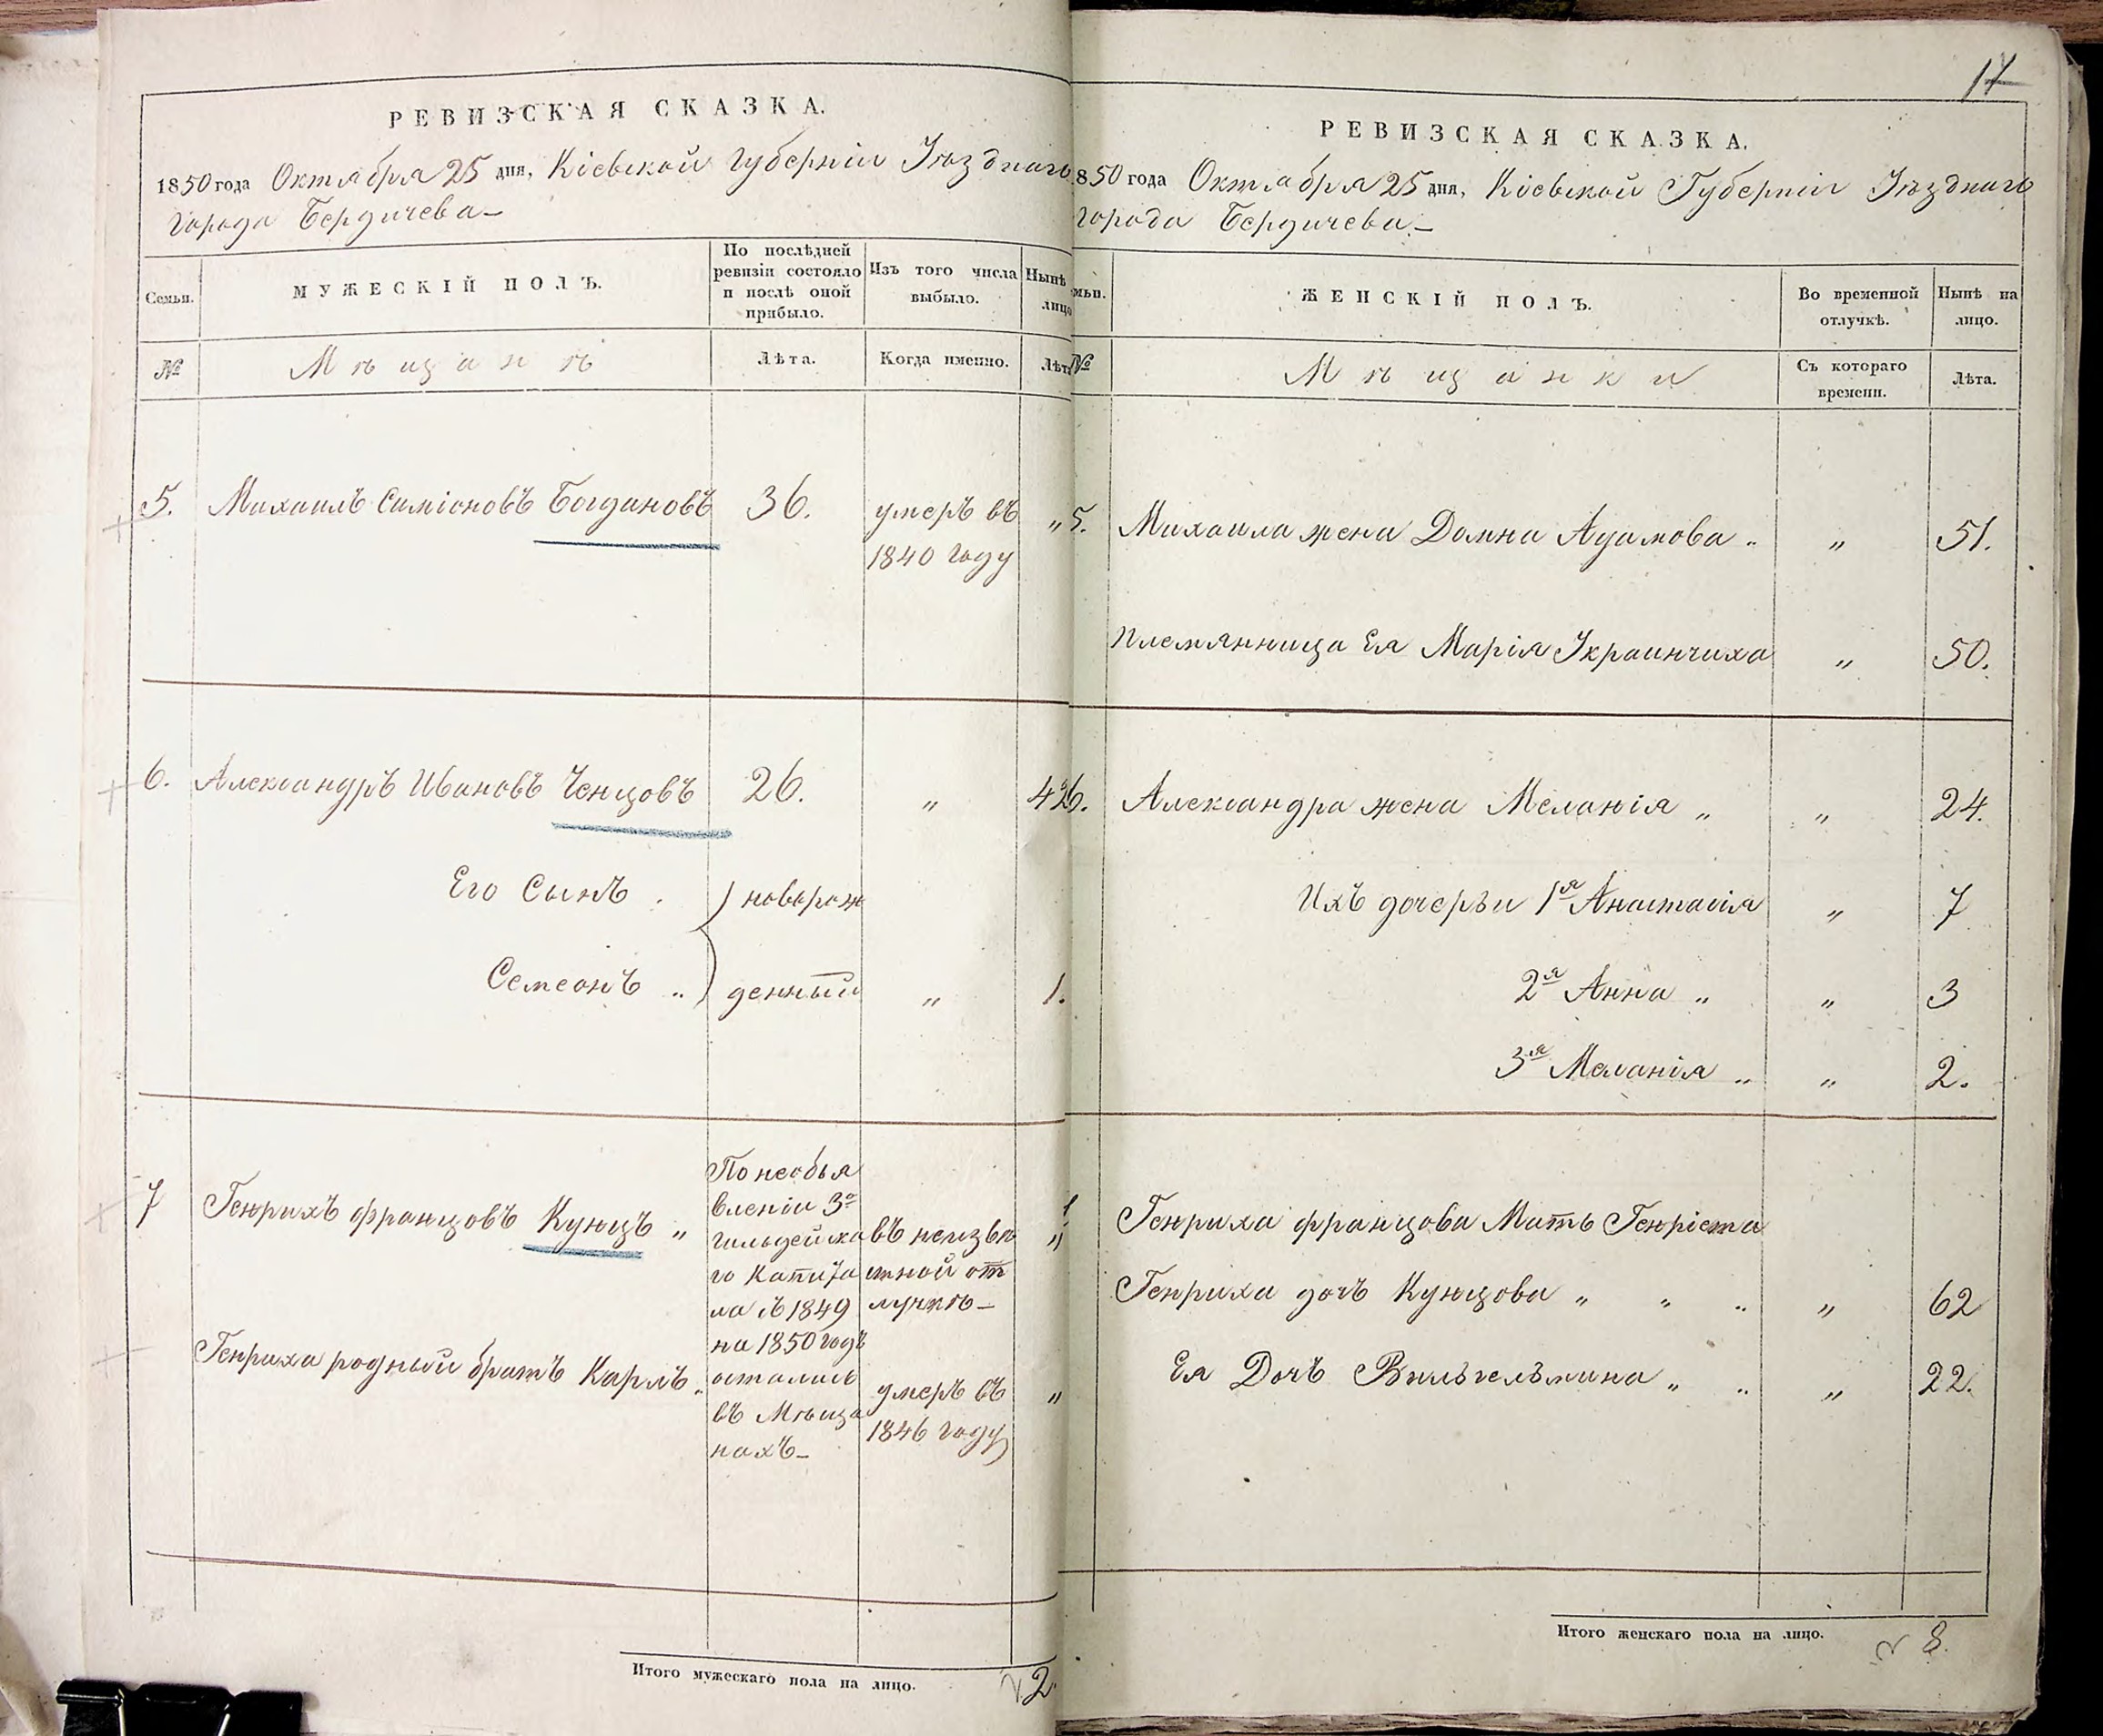 РЕВИЗСКАЯ СКАЗКА.
1850 года Октября 25 дня, Кіевской Губерніи Уѣзднаго
города Бердичева
Семьи.
МУЖЕСКІЙ ПОЛЪ.
По послѣдней
ревизіи состояло
и послѣ оной
прибыло.
Изъ того числа
выбыло.
Нынѣ
лицо
№
Мѣщанѣ
Лѣта.
Когда именно.
Лѣта
5. Михаилъ Симіоновъ Богдановъ 36. умеръ въ „
1840 году
6. Александръ Ивановъ Ченцовъ 26. „ 42
Его Сынъ новорож
Семеонъ „ денный „ 1.
7 Генрихъ францовъ Кунцъ „
По необъя
вленіи 3о
гильдейска
го Капита
ла съ 1849
на 1850 годъ
остались
въ Мѣща
нахъ
въ неизвѣ
стной от
лучкѣ „
Генриха родный братъ Карлъ „
умеръ въ „
1846 году
Итого мужескаго пола на лицо. 2.
17
РЕВИЗСКАЯ СКАЗКА.
850 года Октября 25 дня, Кіевской Губерніи Уѣзднаго
города Бердичева
мьи.
ЖЕНСКІЙ ПОЛЪ.
Во временной
отлучкѣ.
Нынѣ на
лицо.
№
Мѣщанки
Съ котораго
времени.
Лѣта.
5. Михаила жена Домна Адамова „ „ 51.
Племянница Ея Марія Украинчиха „ 50.
6. Александра жена Меланія „ „ 24.
Ихъ дочерьи 1я Анастасія „ 7
2я Анна „ „ 3
3я Меланія „ „ 2.
Генриха францова Мать Генріета
Генриха дочъ Кунцова „ „ „ „ 62
Ея Дочъ Вильгельмина „ „ „ 22.
Итого женскаго пола на лицо. 8.